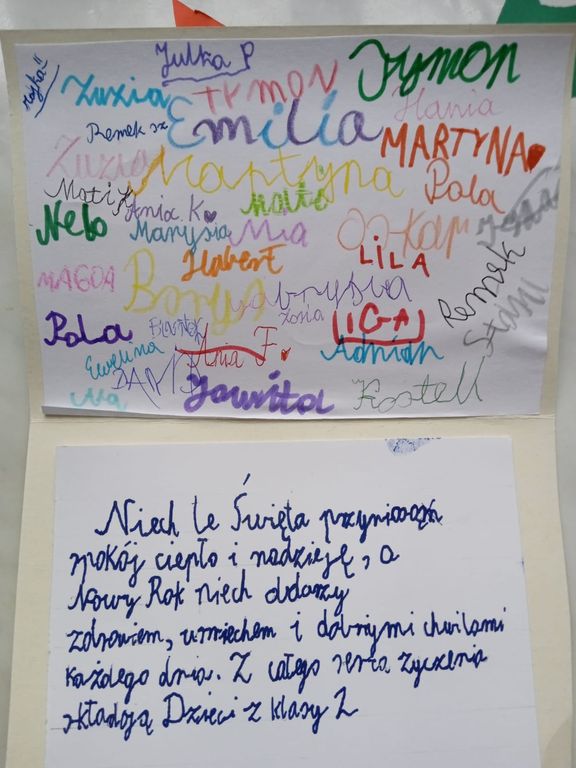 Julka P
Zuzia TYMON Tymon
Emilia Hania
Remek sz
Zuzia Martyna MARTYNA
Matik Ania K Mati Pola
Nelo Marysia Mia Oskar
Hubert LiLA
MAGDA Borys Gabrysia Remek
Zosia IGA Stani
Pola Ania F. Adrian
Ewelina
Jowita Kostek
Niech te Święta przyniosą
spokój ciepło i nadzieję, a
Nowy Rok niech obdarzy
zdrowiem, uśmiechem i dobrymi chwilami
każdego dnia. Z całego serca życzenia
składają Dzieci z klasy 2